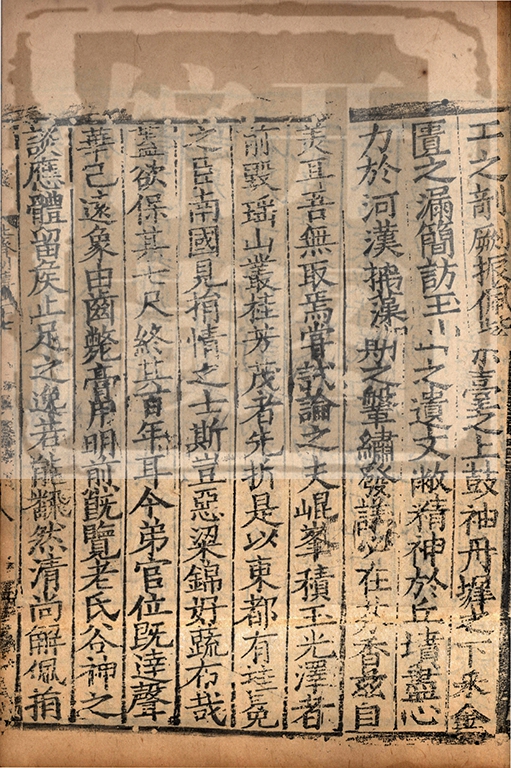 工之剞劂振佩紫臺之上鼓袖丹墀之下采金
匱之漏簡訪玉山之遺文敝精神於丘墳盡心
力於河漢摛藻期之鞶繡發議必在芬香茲自
美耳吾無取焉嘗試論之夫崐峯積玉光澤者
前毀瑶山叢桂芳茂者先折是以東都有挂冕
之臣南國見捐情之士斯豈惡粱錦好蔬布哉
蓋欲保其七尺終其百年耳今弟官位既達聲
華已逺象由齒斃膏用明煎既覽老氏谷神之
談應體留侯止足之逸若能飜然清尚解佩捐